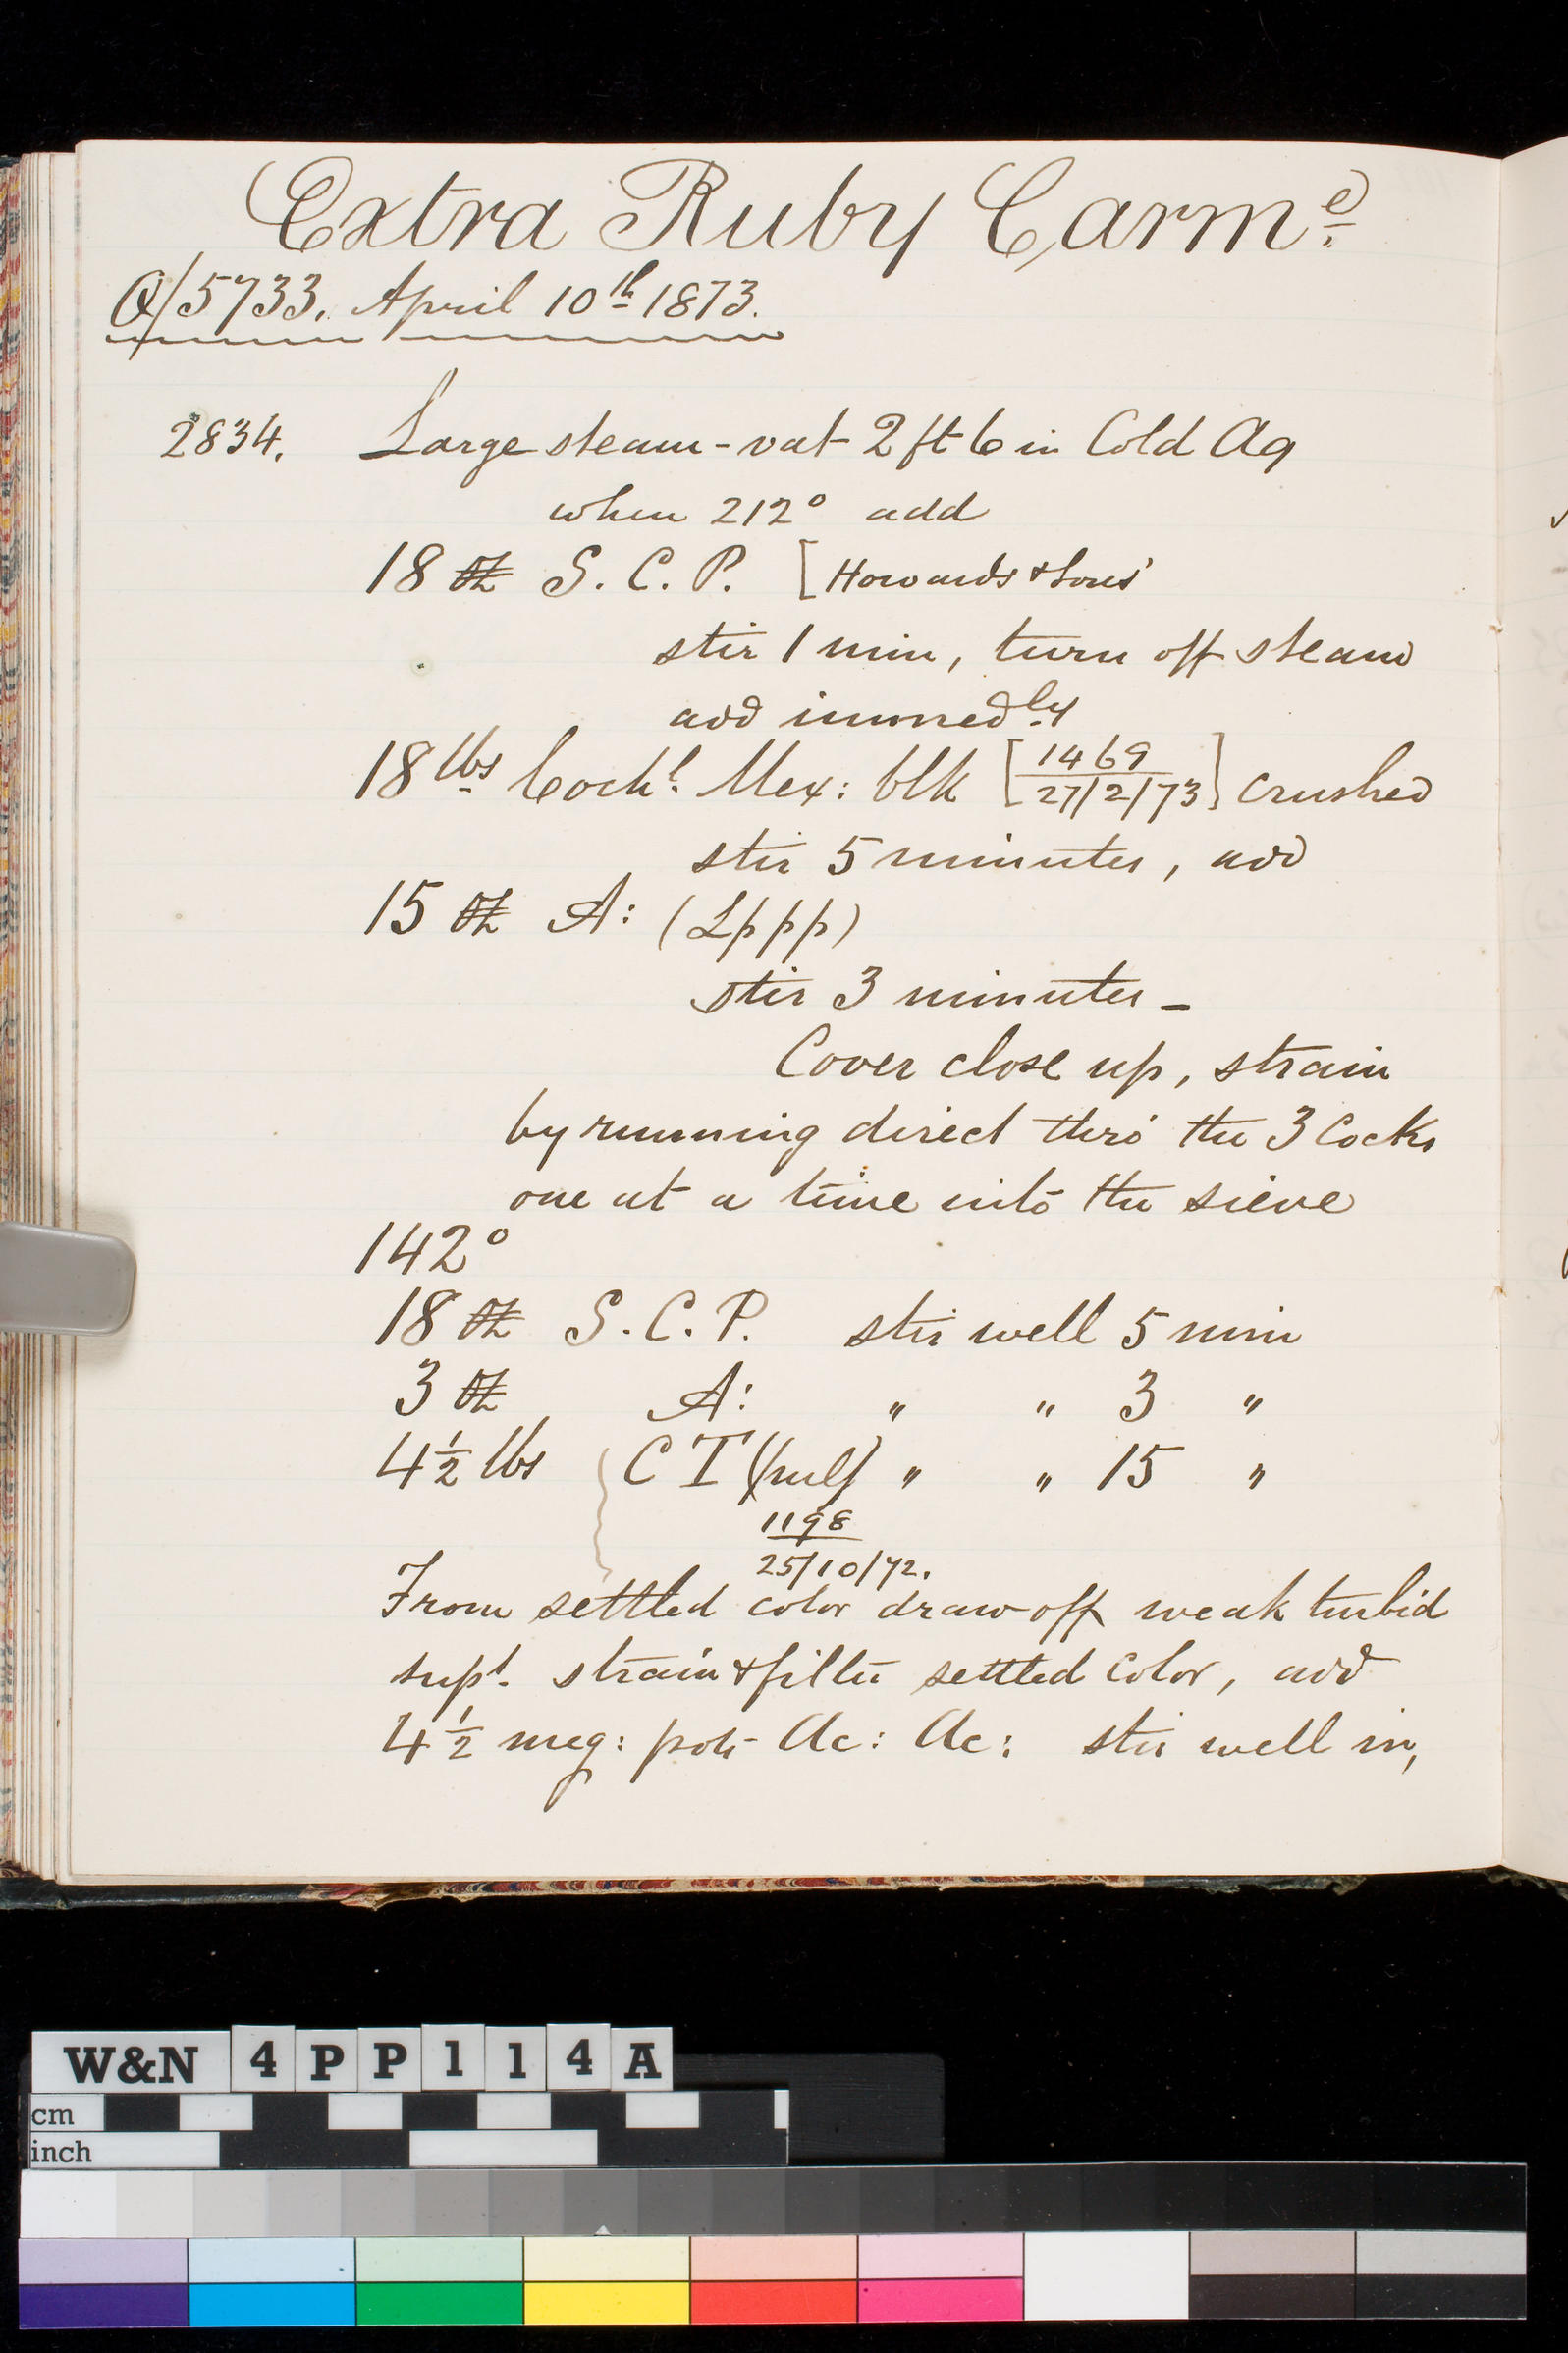 Extra Ruby Carm.e
Q/5733. April 10th 1873.
2834. Large steam-vat 2 ft 6 in Cold Aq
when 212° add
18 oz S. C. P. [Howards & Sons'
stir 1 min, turn off steam
add immed.ly
18 lbs Coch.l Mex: blk [1469 / 27/2/73] crushed
stir 5 minutes, add
15 oz A: (Lppp)
stir 3 minutes -
Cover close up, strain
by running direct thro' the 3 Cocks
one at a time into the sieve
142°
18 oz S. C. P. stir well 5 min
3 oz A: " " 3 "
4 1/2 lbs C T " " 15 "
1198
25/10/72.
From settled color draw off weak turbid
supt. strain & filter settled color, add
4 1/2 meg: pot- Ac: Ac: stir well in,
W&N 4PP114A
cm
inch